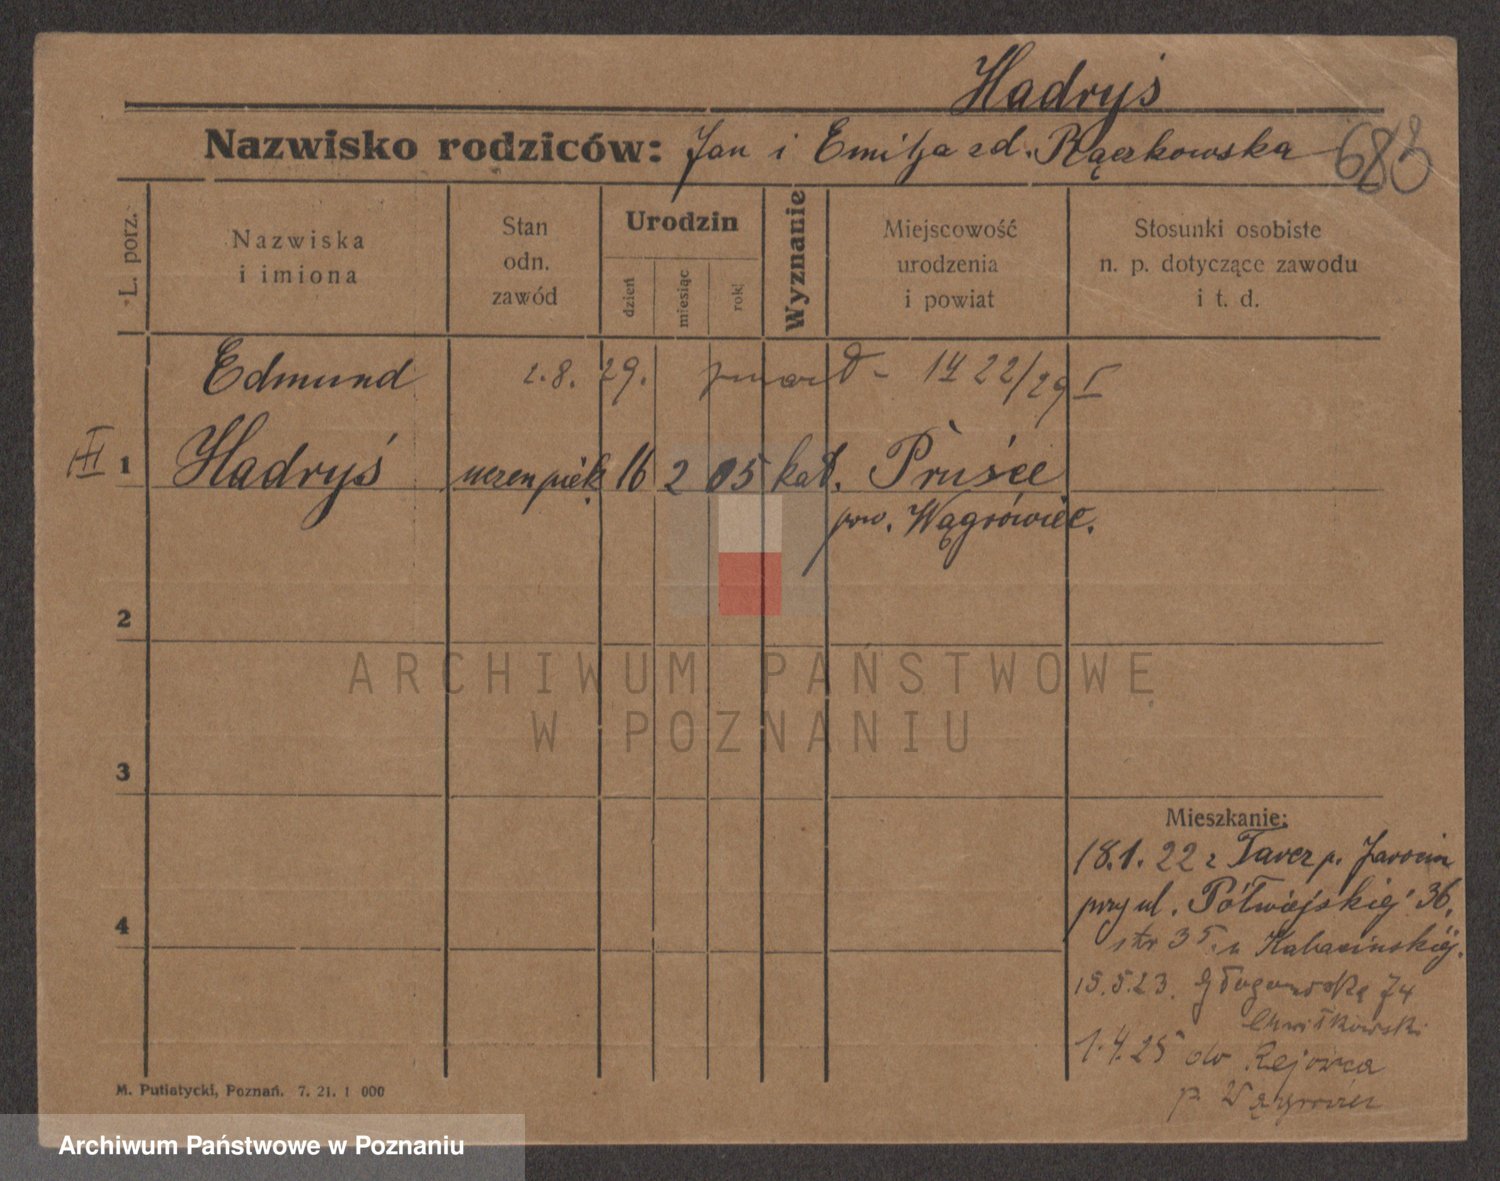 Hadryś
Nazwisko rodziców: Jan i Emilja zd. Rączkowska
683
L. porz.
Nazwiska
i imiona
Stan
odn.
zawód
Urodzin
dzień
miesiąc
rok
Wyznanie
Miejscowość
urodzenia
i powiat
Stosunki osobiste
n. p. dotyczące zawodu
i t. d.
Edmund 2.8. 29. zmarł - 22/29 I
III 1 Hadryś uczen piek. 16 2 05 kat. Pruśce
pow. Wągrówiec.
2
3
4
Mieszkanie:
18.1.22 z p. Jarocin
przy ul. Półwiejskiej 36.
str 35. u Kabacińskiej.
15.5.23. Głogowska 74
Chwiłkowski
1.4.25 do Rejowca
p. Wągrowiec
M. Putiatycki, Poznań. 7. 21. 1 000
ARCHIWUM PAŃSTWOWE
W POZNANIU
Archiwum Państwowe w Poznaniu